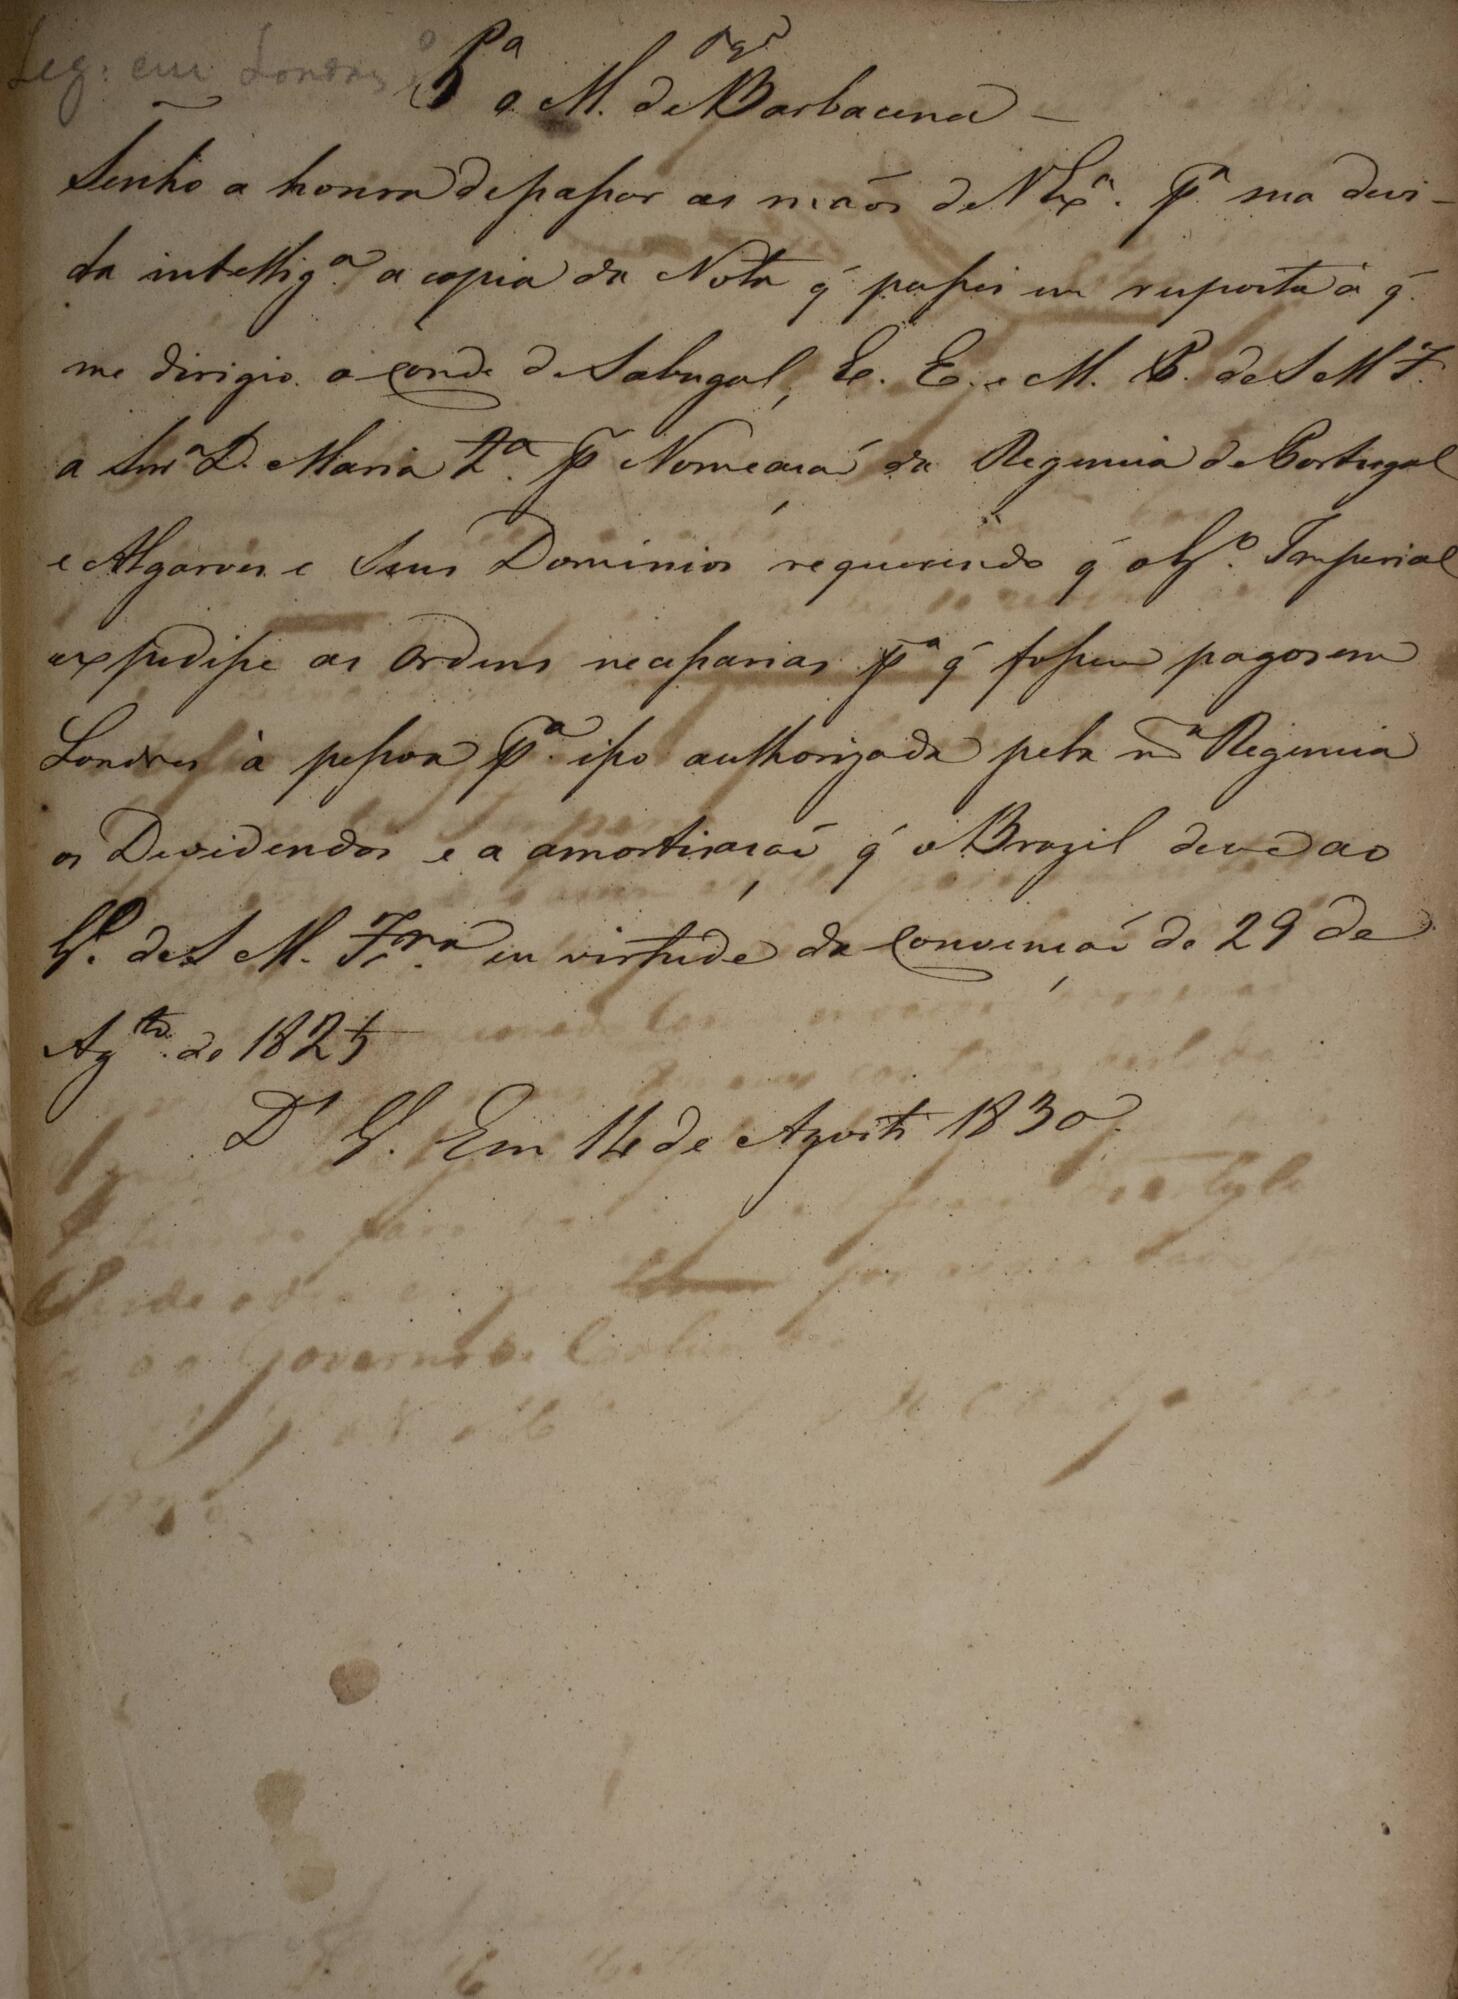 Leg: em Londres
Pª o M. de Barbacena
Tenho a honra de passar as mãos de V Exª. pª sua devi-
da intelligª a copia da Nota q̃ passei em resposta á q̃
me dirigio o Conde de Sabugal, E. E. e M. P. de S M F.
a Snrª D. Maria 2ª. pr Nomeação da Regencia de Portugal
e Algarves e seus Dominios requerendo q̃ o Gº. Imperial
expedisse as Ordens necessarias pª q̃ fossem pagos em
Londres à pessoa pª. isso authorizada pela mª Regencia
os Dividendos e a amortisação q̃ o Brazil deve ao
Gº. de S M. Fmª em virtude da Convenção de 29 de
Agto. de 1825
Ds G. Em 14 de Agosto 1830.